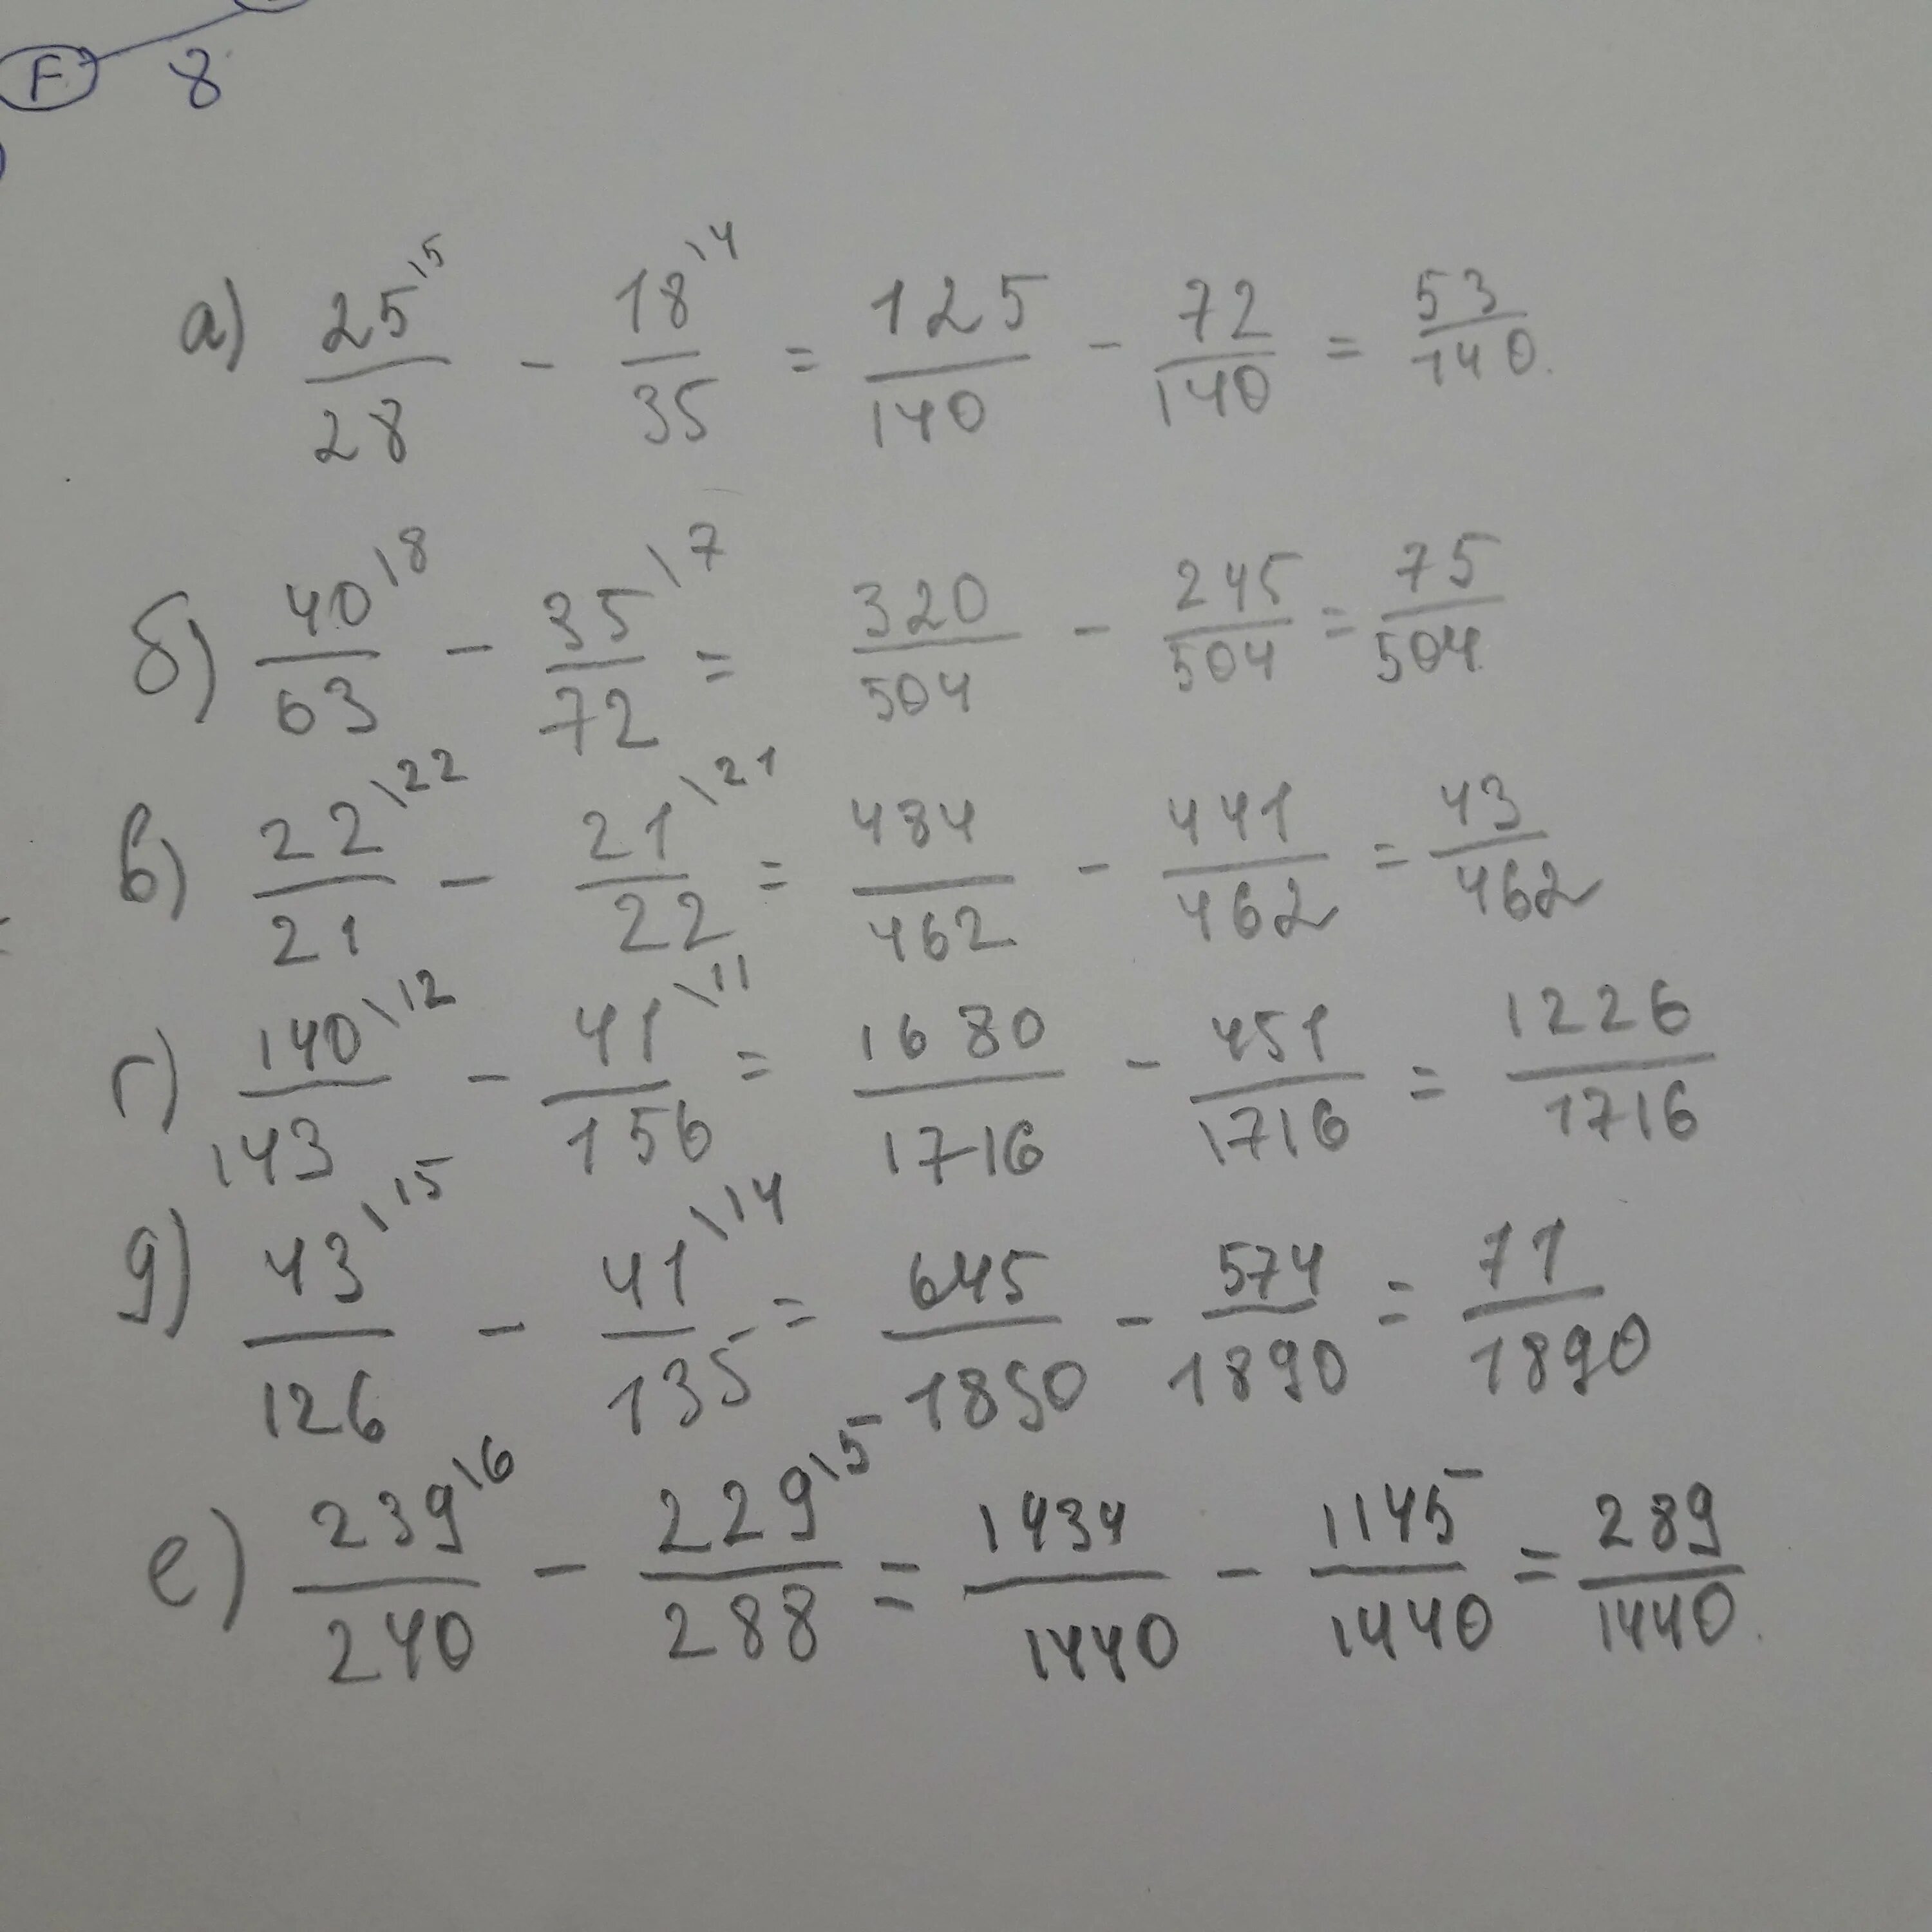 F 8
а) 25\5/28 - 18\4/35 = 125/140 - 72/140 = 53/140.
б) 40\8/63 - 35\7/72 = 320/504 - 245/504 = 75/504.
в) 22\22/21 - 21\21/22 = 484/462 - 441/462 = 43/462
г) 140\12/143 - 41\11/156 = 1680/1716 - 451/1716 = 1226/1716
д) 43\15/126 - 41\14/135 = 645/1890 - 574/1890 = 71/1890
е) 239\6/240 - 229\5/288 = 1434/1440 - 1145/1440 = 289/1440.